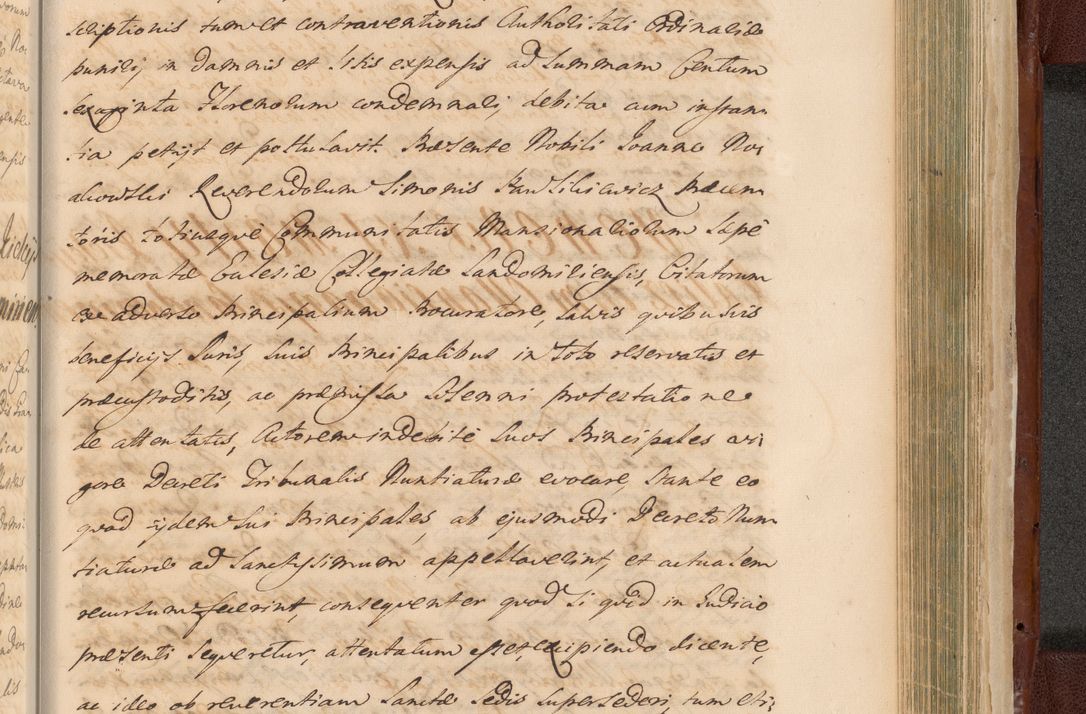 scriptionis tum et contraventionis Authoritati Ordinariæ
puniri, in damnis et litis expensis ad summam Centum
sexaginta Florenorum condemnari, debita cum instan-
tia petijt et postulavit. Præsente Nobili Joanne
Reverendorum Simonis Præcen
toris totiusque Communitatis Mansionariorum sæpe
memoratæ Eclesiæ Collegiatæ Sandomiriensis, Citatorum
ex adverso Principalium Procuratore, salvis quibusvis
beneficijs Juris, suis Principalibus in toto reservatis et
præcustoditis, ac præmissa solenni protestatione
de attentatis, Actorem indebitè suos Principales vi-
gore Decreti Tribunalis Nuntiaturæ evocare, stante eo
quod ijdem sui Principales, ab ejusmodi Decreto Nun
tiaturæ ad Sanctissimum appellaverint, et actualem
recursum fecerint, consequenter quod si quid in Judicio
præsenti sequeretur, attentatum esset, excipiendo dicente,
ac ideo ob reverentiam Sanctæ Sedis supersederi, tum eti-